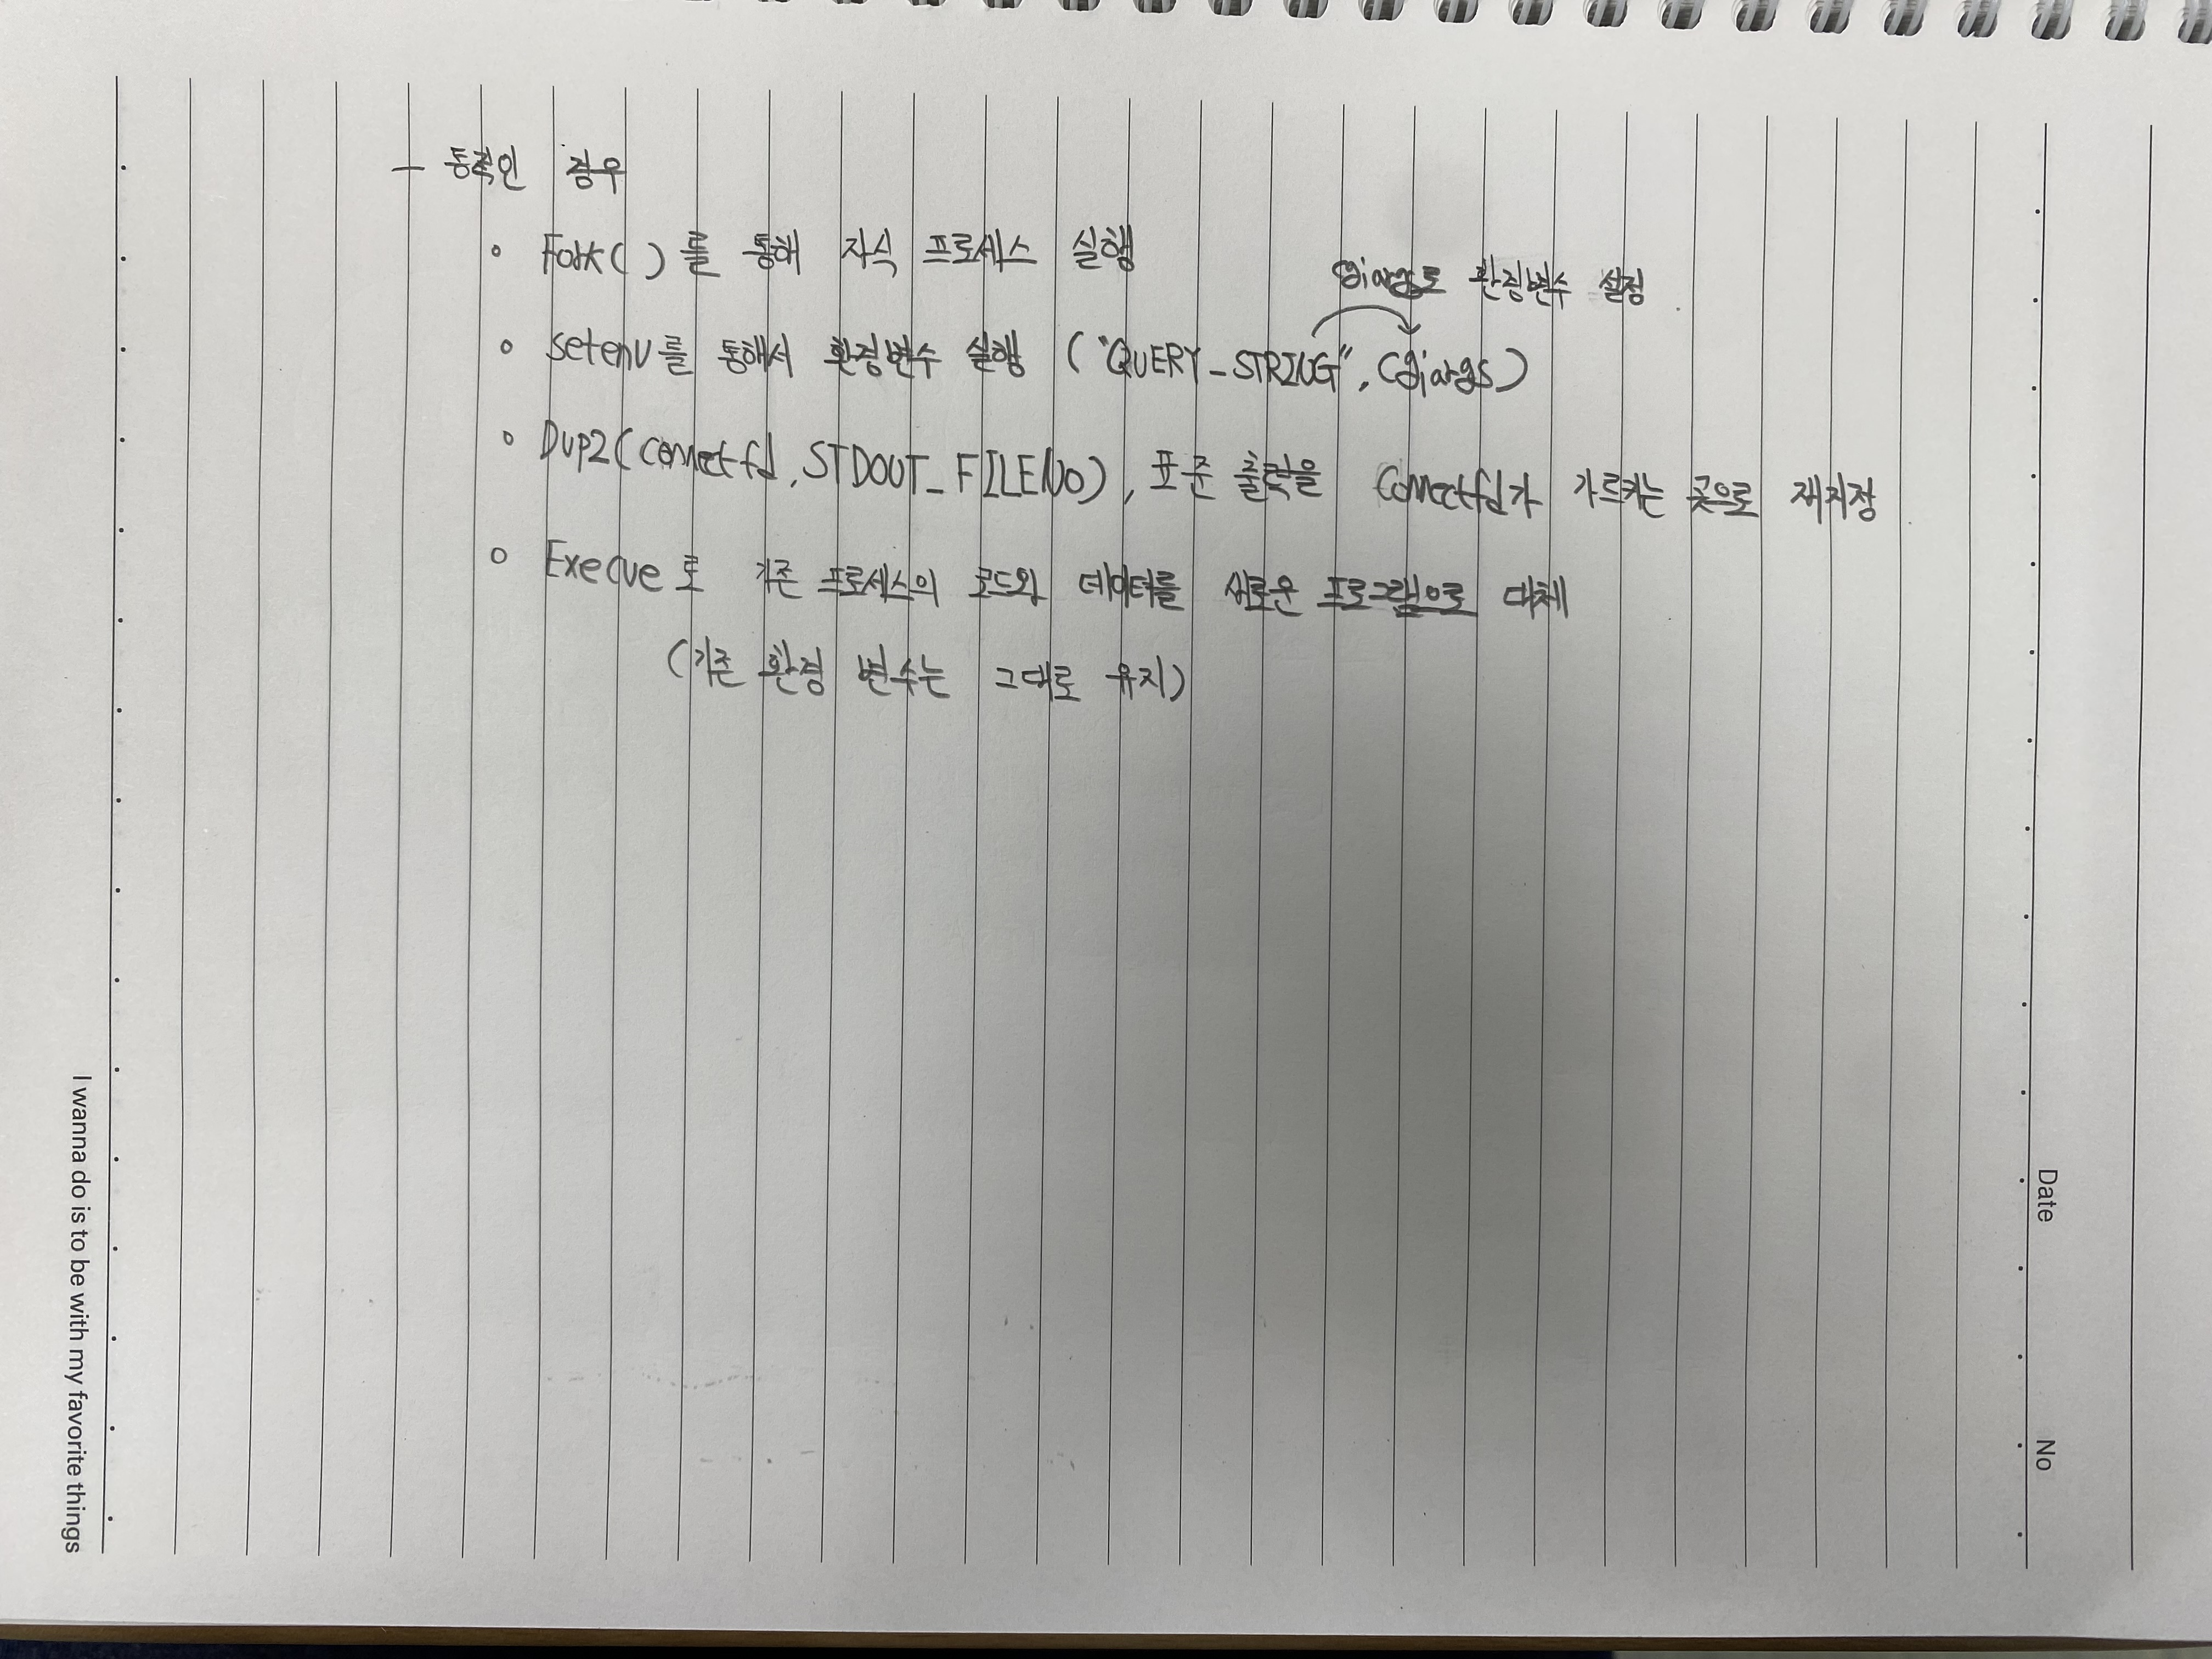 - 동적인 경우
◦ Fork( )를 통해 자식 프로세스 실행
cgiargs로 환경변수 설정
◦ setenv를 통해서 환경변수 실행 ("QUERY_STRING", cgiargs)
◦ Dup2(connectfd, STDOUT_FILENO), 표준 출력을 connectfd가 가르키는 곳으로 재지정
◦ Execve로 기존 프로세스의 코드와 데이터를 새로운 프로그램으로 대체
(기존 환경 변수는 그대로 유지)
Date
No
I wanna do is to be with my favorite things